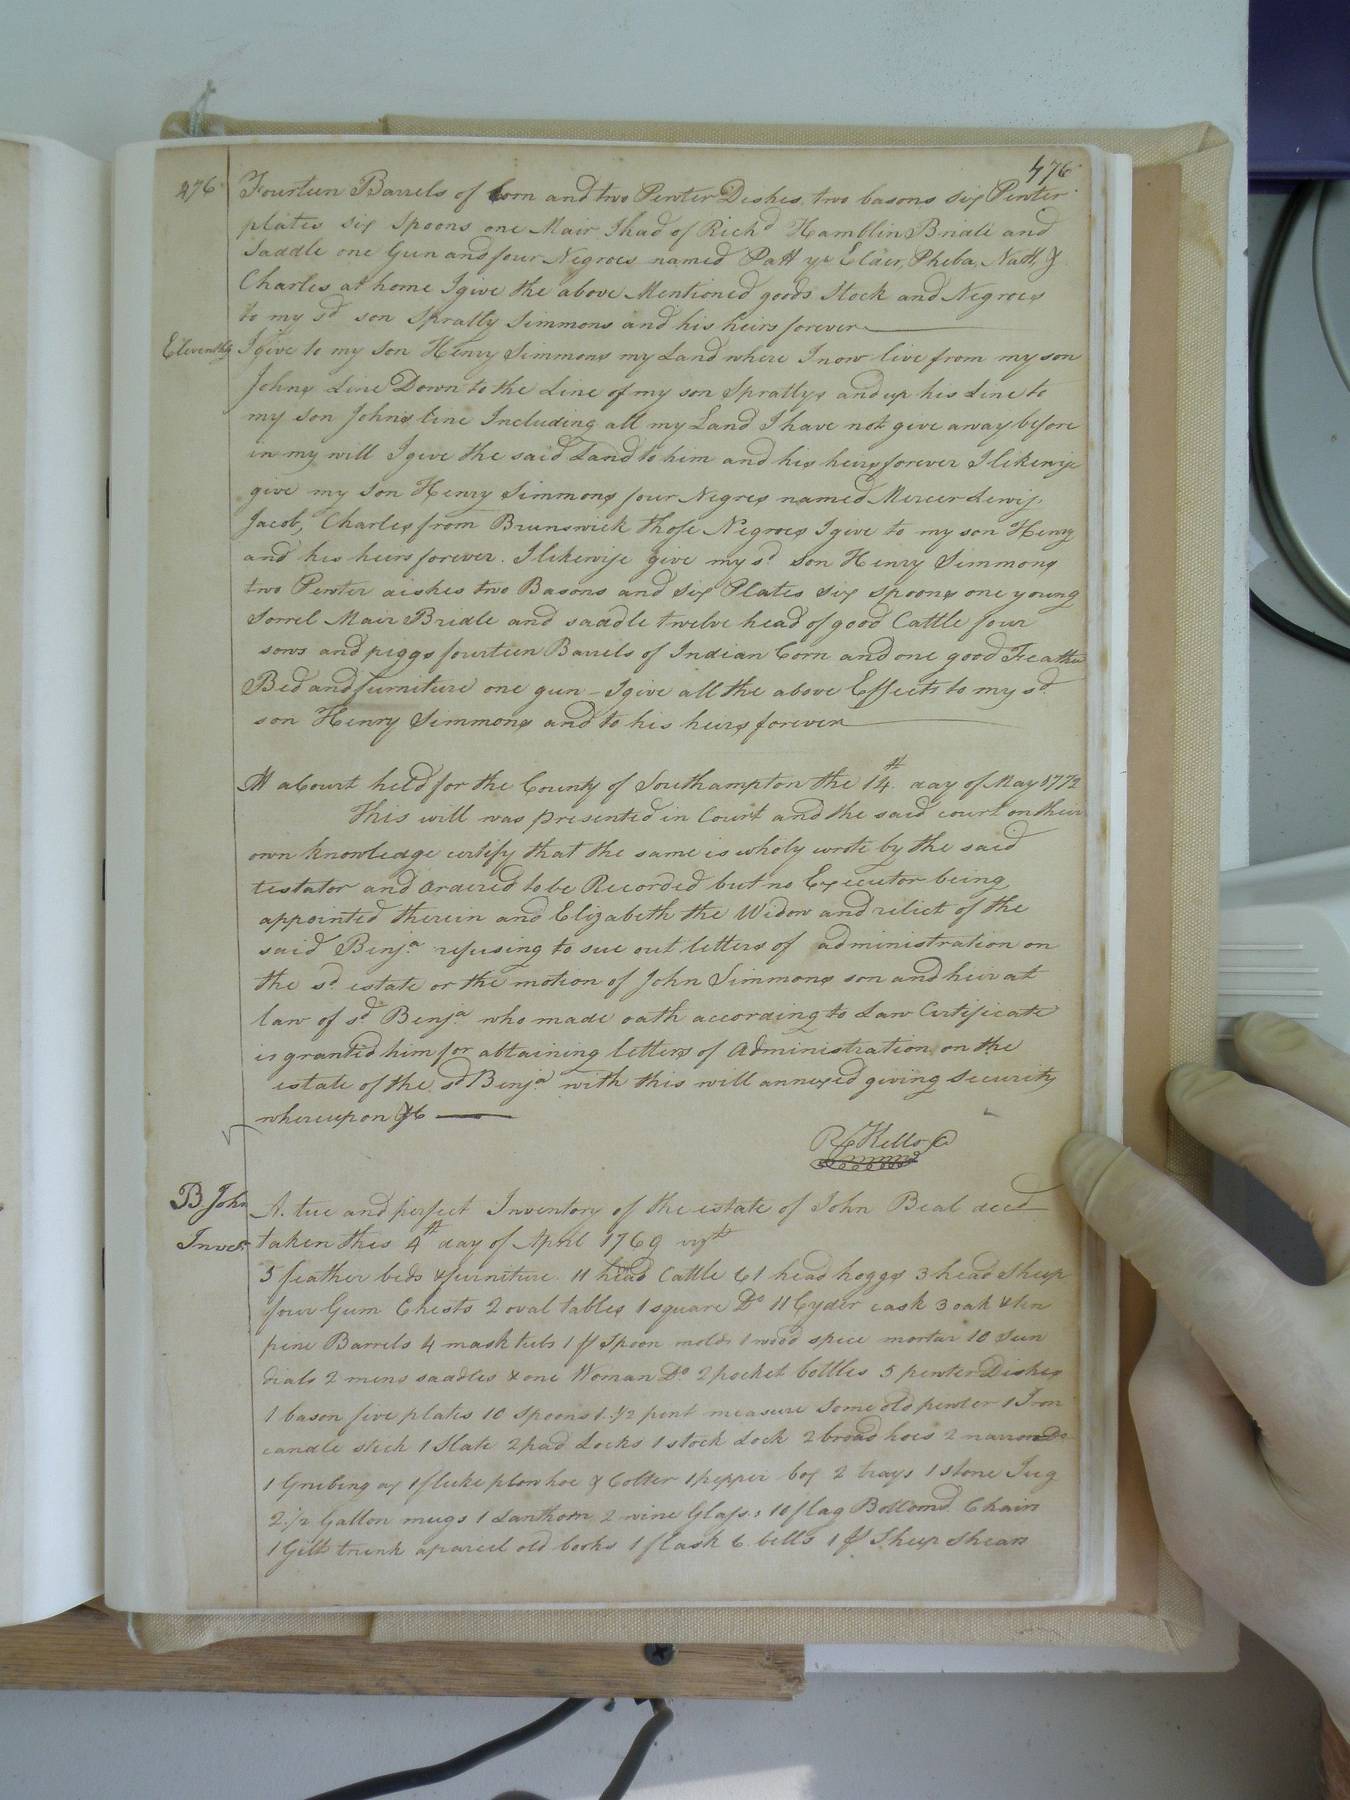 476
276
Fourteen Barrels of Corn and two Pewter Dishes two basons six Pewter
plates six Spoons one Mair I had of Richd Hamblin Bridle and
Saddle one Gun and four Negroes named Patt ye Elder, Pheba, Natt, &
Charles at home I give the above Mentioned goods Stock and Negroes
to my sd son Spratly Simmons and his heirs forever
Eleventhly I give to my son Henry Simmons my Land where I now live from my son
Johns Line Down to the Line of my son Spratlys and up his Line to
my son Johns Line Including all my Land I have not give away before
in my will I give the said Land to him and his heirs forever I likewise
give my son Henry Simmons four Negres named Mercer Lewis,
Jacob, Charles from Brunswick those Negroes I give to my son Henry
and his heirs forever. I likewise give my sd son Henry Simmons
two Pewter dishes two Basons and six Plates six spoons one young
Sorrel Mair Bridle and saddle twelve head of good Cattle four
sows and piggs fourteen Barrels of Indian Corn and one good Feather
Bed and furniture one gun - I give all the above Effects to my sd
son Henry Simmons and to his heirs forever
At a Court held for the County of Southampton the 14th day of May 1772
This will was presented in Court and the said court on their
own knowledge certify that the same is wholy wrote by the said
testator and ordered to be Recorded but no Executor being
appointed therein and Elizabeth the Widow and relict of the
said Benja refusing to sue out letters of administration on
the sd estate or the motion of John Simmons son and heir at
law of sd Benja who made oath according to Law Certificate
is granted him for abtaining letters of Administration on the
estate of the sd Benja with this will annexed giving Security
whereupon &c
Rd Kello C
B John A. tue and perfect Inventory of the estate of John Beal decd
Invet. taken this 4th day of April 1769 vizt
5 feather beds & furniture 11 head Cattle 61 head hoggs 3 head Sheep
four Gum Chests 2 oval tables 1 square Do 11 Cyder cask 3 oak & ten
pine Barrels 4 mask tubs 1 pr Spoon molds 1 wood spice mortar 10 Sun
dials 2 mens saddles & one Woman Do 2 pocket bottles 5 pewter Dishes
1 bason five plates 10 spoons 1 1/2 pint measure Some old pewter 1 Iron
candle stick 1 Slate 2 pad Locks 1 stock Lock 2 broad hoes 2 narrow Do
1 Grubing ax 1 fluke plow hoe & Colter 1 pepper box 2 trays 1 stone Jug
2 1/2 Gallon mugs 1 Lanthorn 2 wine Glass's 10 flag Bottomd Chairs
1 Gilt trunk a parcel old books 1 flask 6 bells 1 pr Sheep Shears